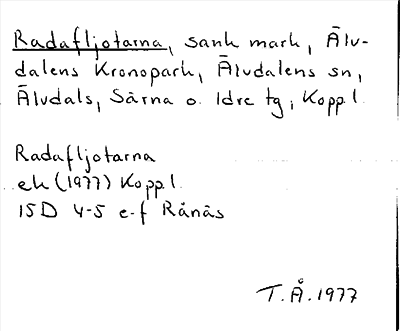 Radafljotarna, sank mark, Älv-
dalens Kronopark, Älvdalens sn,
Älvdals, Särna o. Idre tg, Koppl.
Radafljotarna
ek (1977) Koppl.
15D 4-5 e-f Rånäs
T.Å.1977